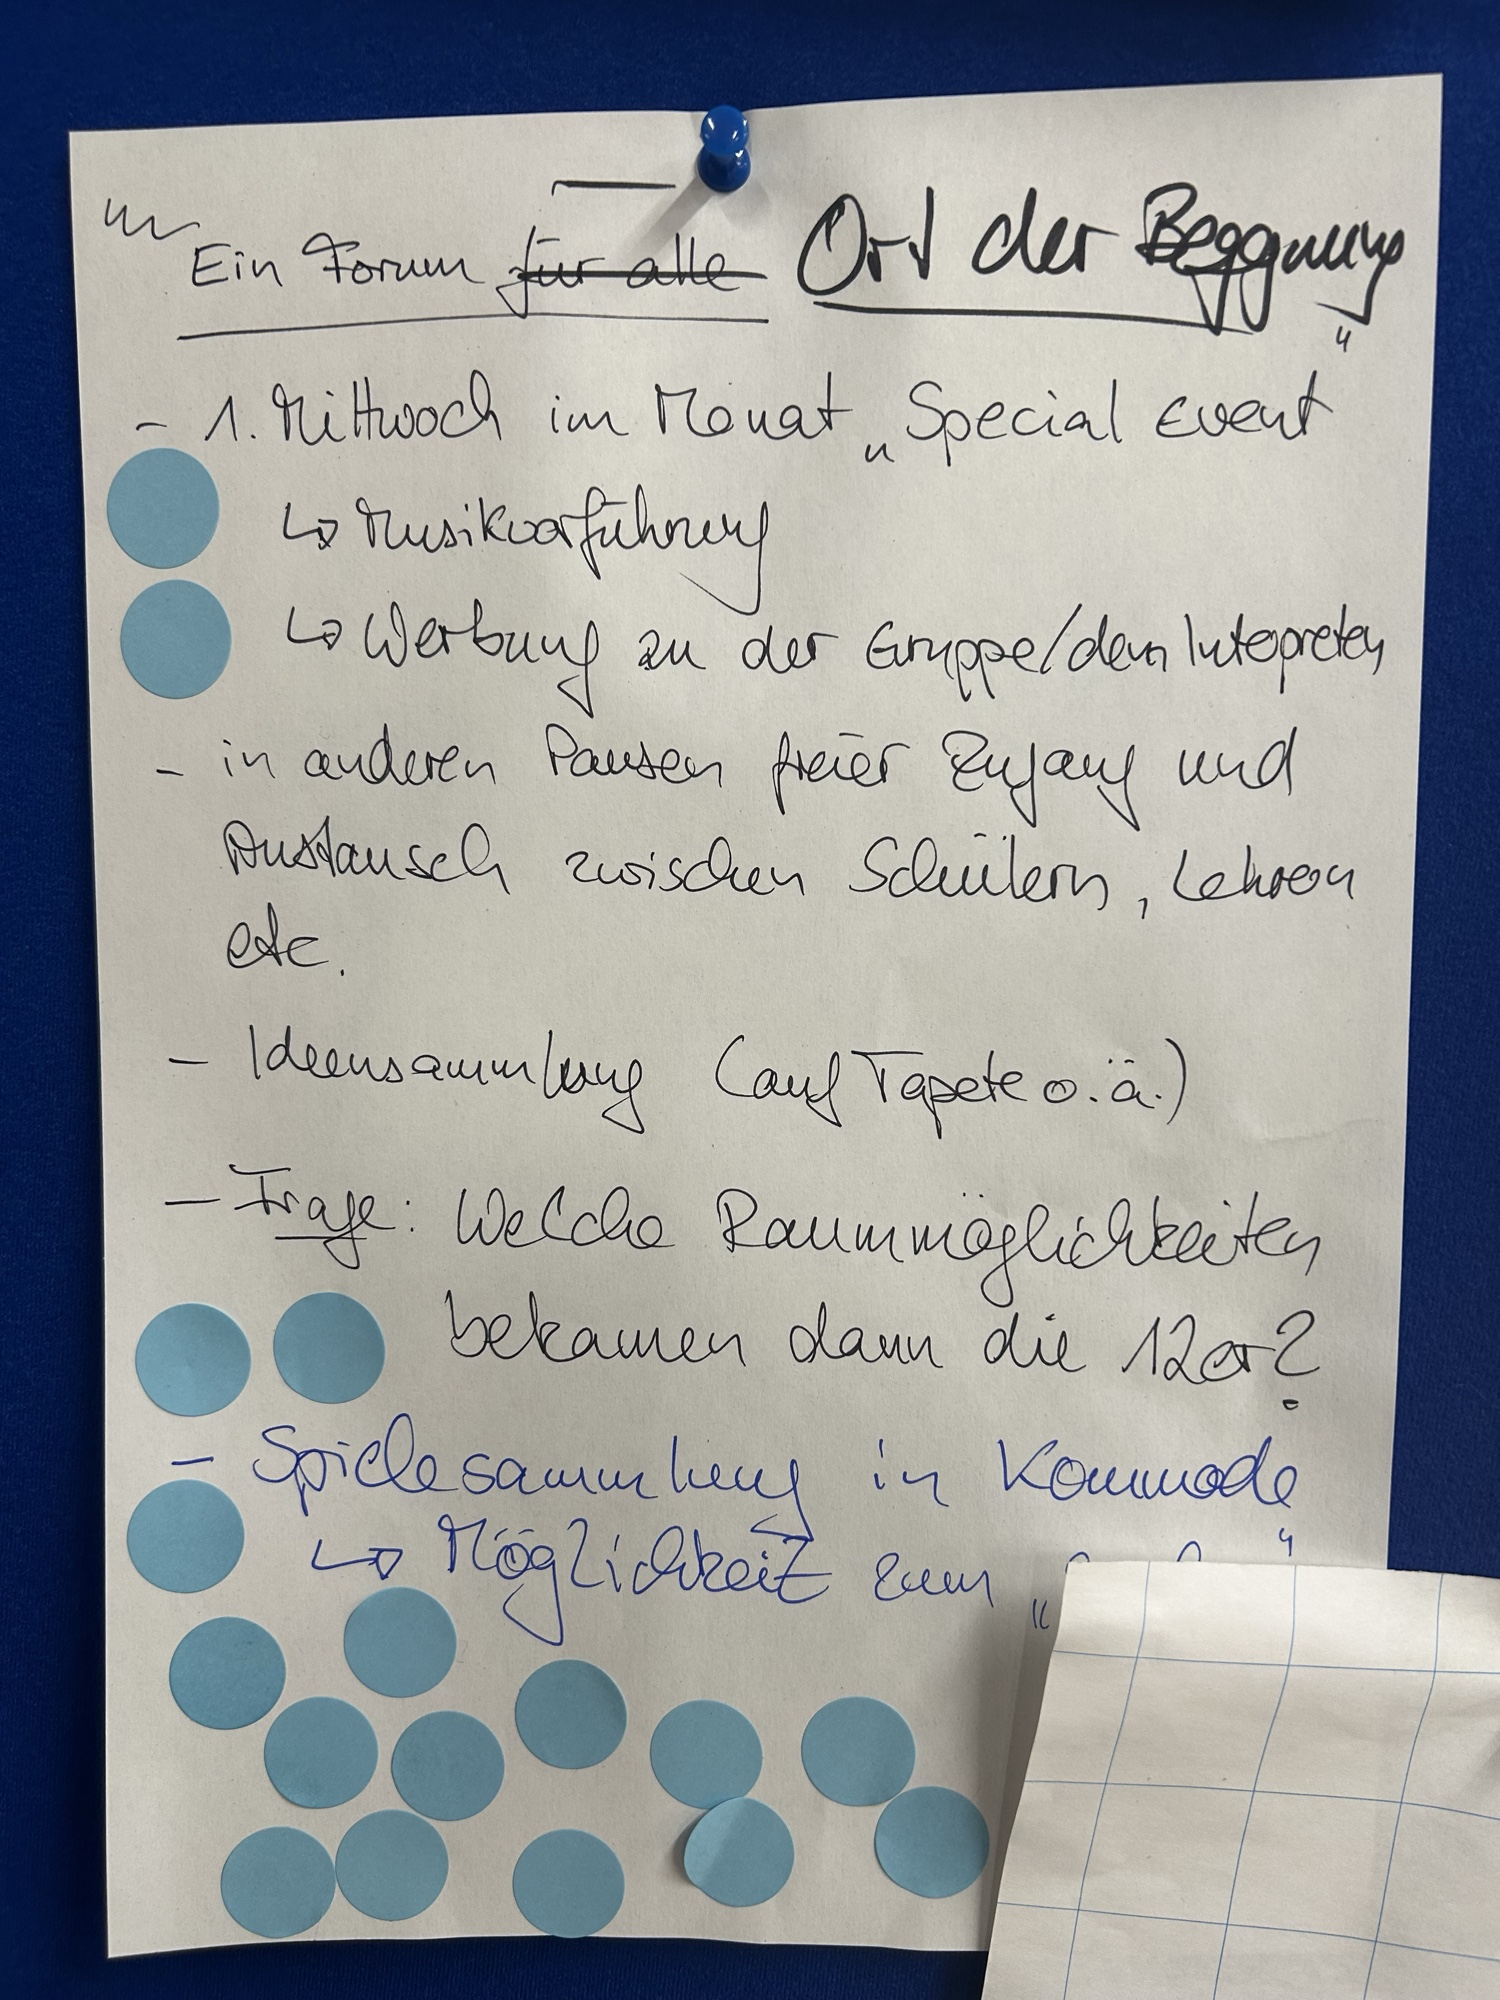 Ein Forum für alle Ort der Begegnung
- 1. Mittwoch im Monat „Special Event“
↳ Musikvorführung
↳ Werbung zu der Gruppe/dem Interpreten
- in anderen Pausen freier Zugang und
Austausch zwischen Schülern, Lehrern
etc.
- Ideensammlung (auf Tapete o.ä.)
- Frage: Welche Raummöglichkeiten
bekamen dann die 12er?
- Spielesammlung in Kommode
↳ Möglichkeit zum „